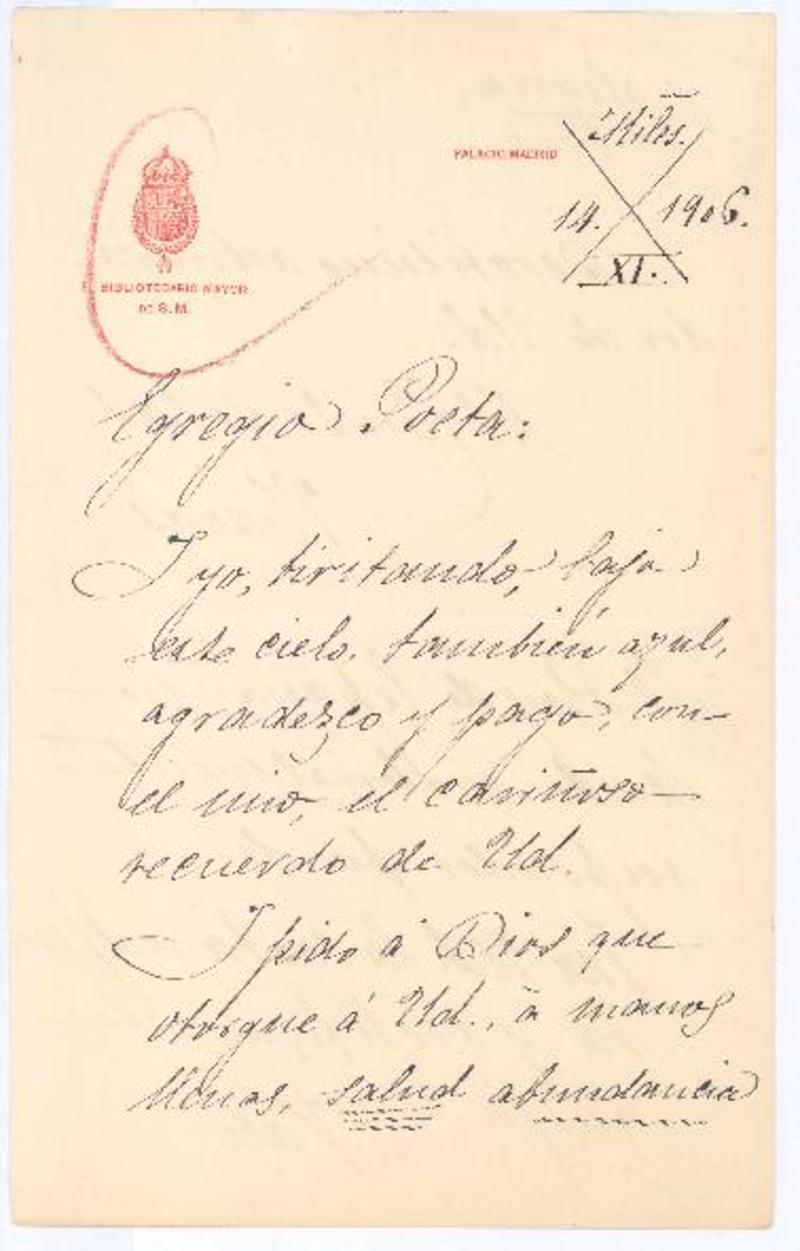 PALACIO. MADRID
Miles.
14. 1906.
XI.
EL BIBLIOTECARIO MAYOR
DE S. M.
Egregio Poeta:
I yo, tiritando, bajo
este cielo, también azul,
agradezco y pago, con
el mio, el cariñoso
recuerdo de Ud.
I pido á Dios que
otorgue á Ud., á manos
llenas, salud abundancia